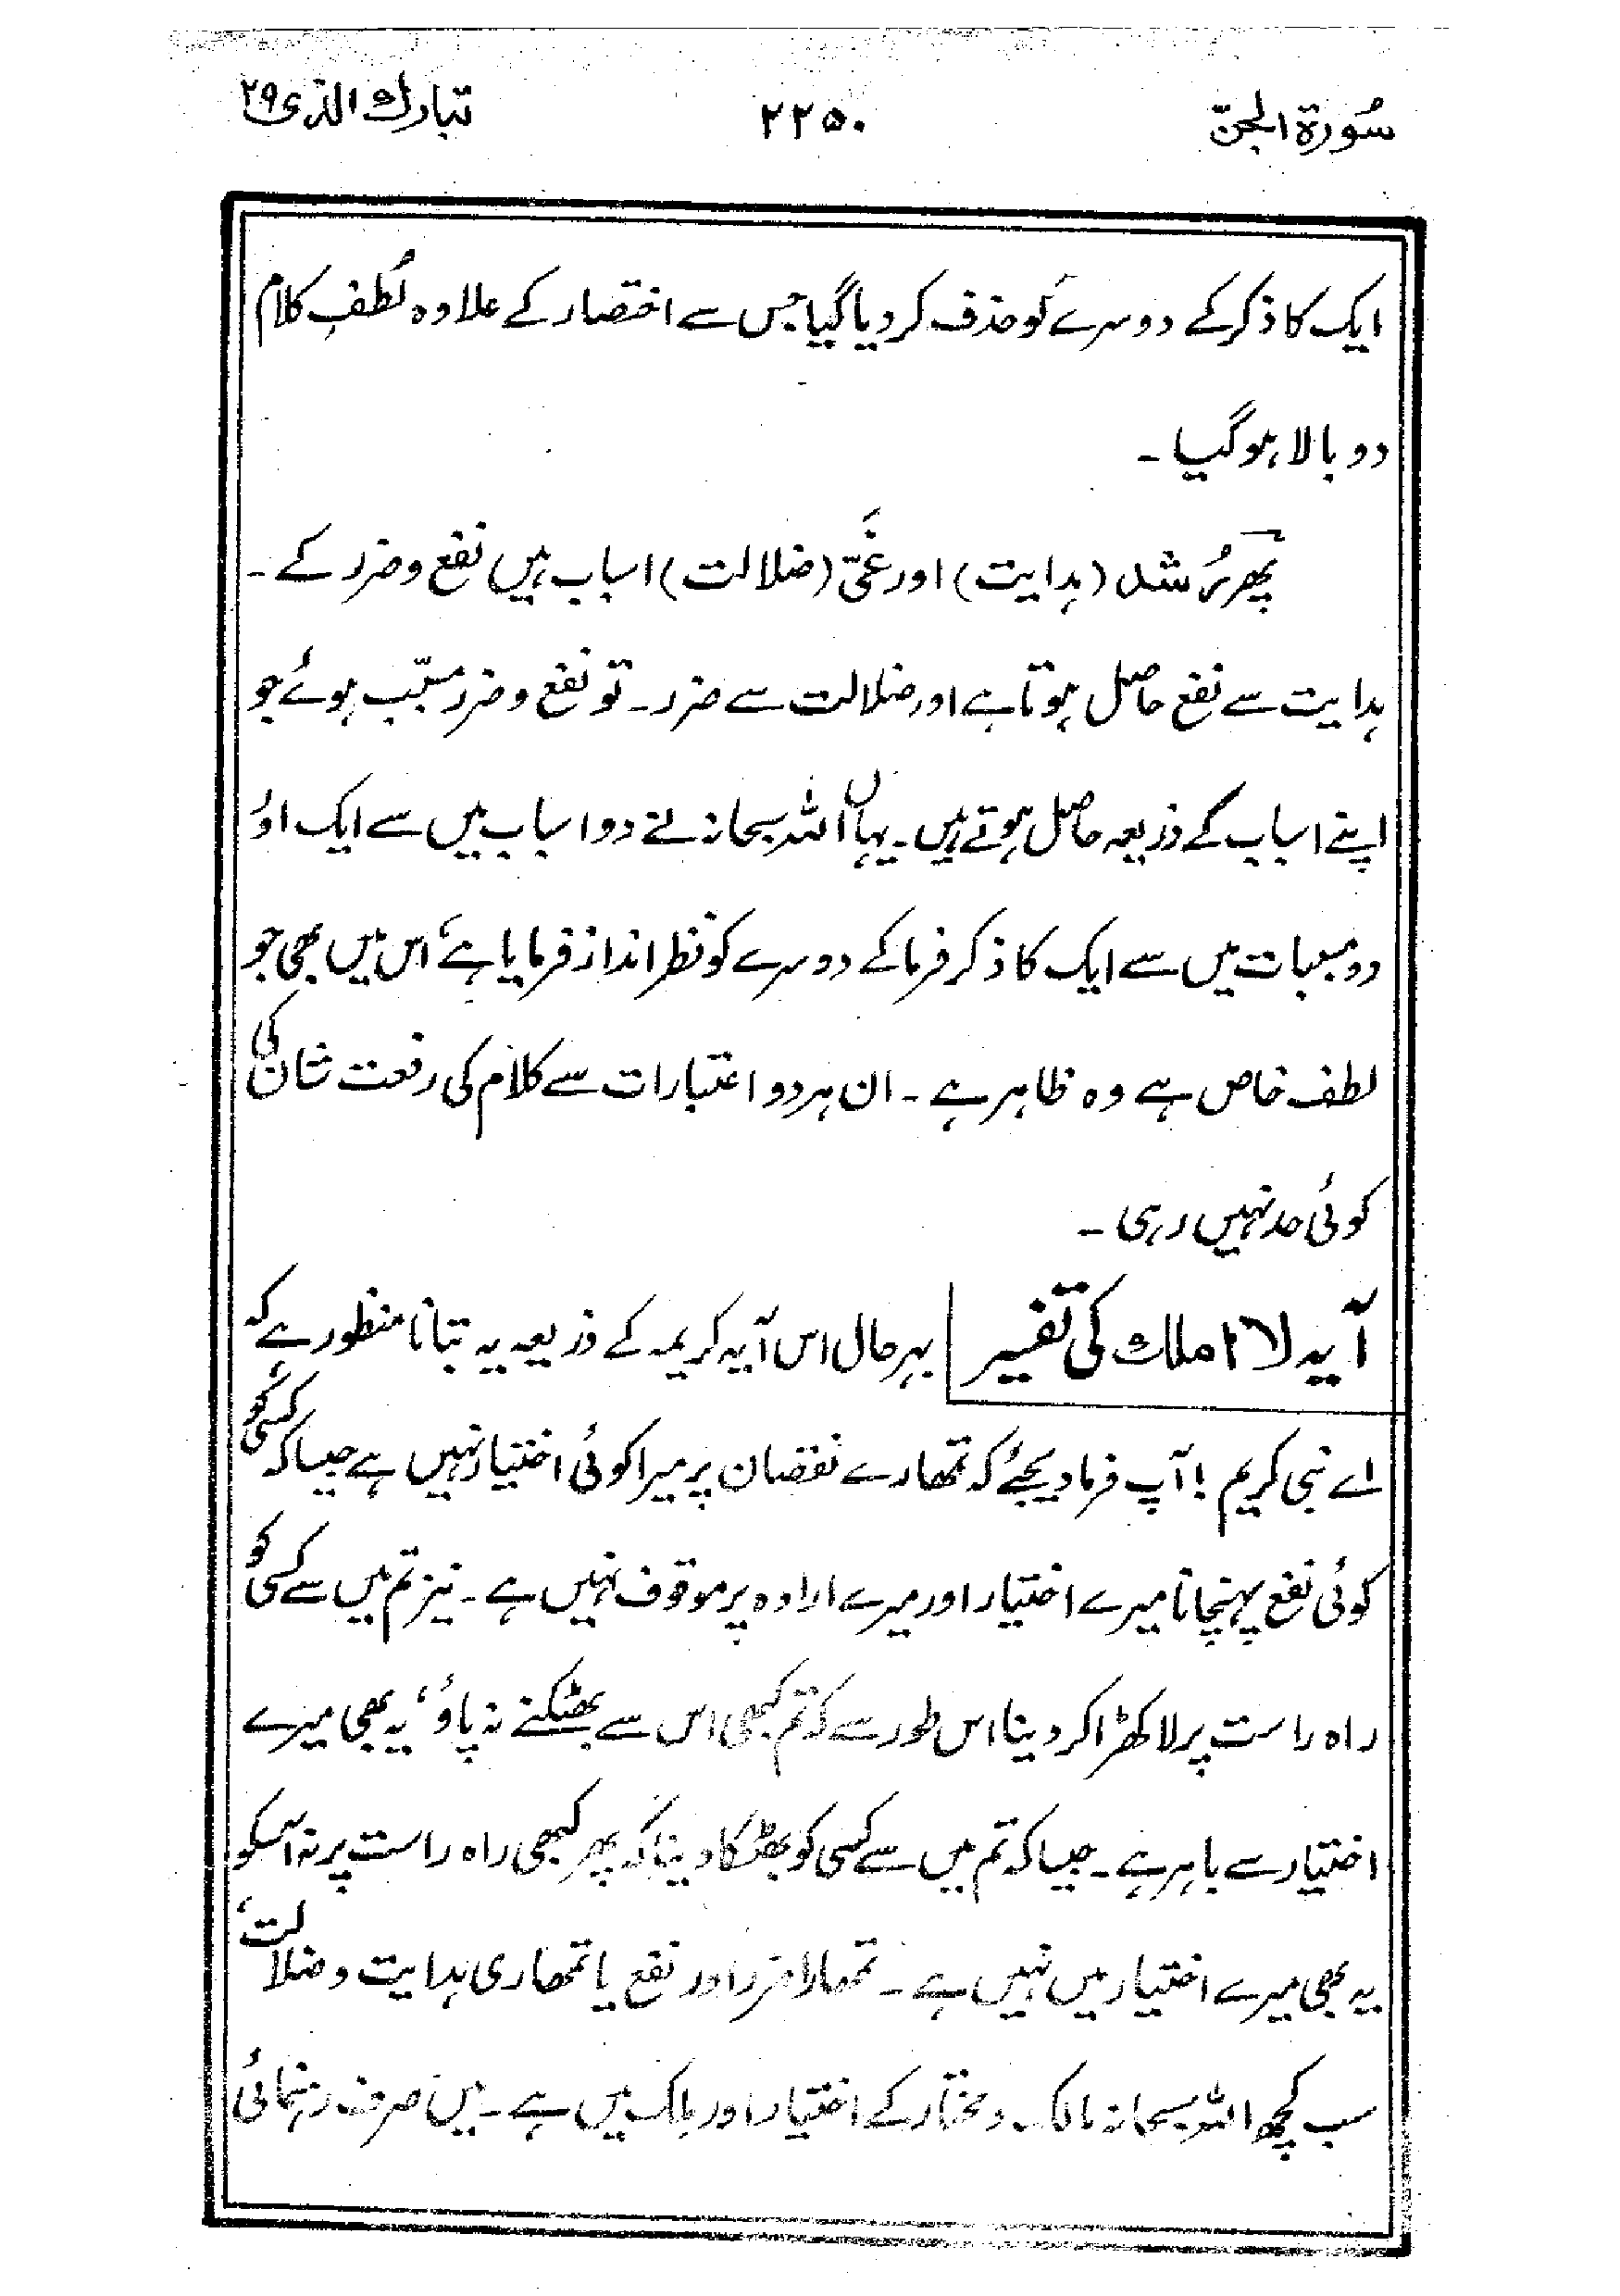 سُورۃ الجنّ
۲۲۵۰
تبارك الذی ۲۹
ایک کا ذکر کے دوسرے کو حذف کر دیا گیا جس سے اختصار کے علاوہ لُطفِ کلام
دوبالا ہوگیا ۔
پھر رُشد (ہدایت) اور غَیّ (ضلالت) اسباب ہیں نفع و ضرر کے ۔
ہدایت سے نفع حاصل ہوتا ہے اور ضلالت سے ضرر ۔ تو نفع و ضرر مسبّب ہوئے جو
اپنے اسباب کے ذریعہ حاصل ہوتے ہیں ۔ یہاں اللہ سبحانہ نے دو اسباب میں سے ایک اوُ
دو مسببات میں سے ایک کا ذکر فرما کے دوسرے کو نظر انداز فرمایا ہے، اس میں بھی جو
لطف خاص ہے وہ ظاہر ہے ۔ ان ہر دو اعتبارات سے کلام کی رفعت شان کی
کوئی حد نہیں رہی ۔
آیہ لا املك کی تفسیر بہرحال اس آیہ کریمہ کے ذریعہ یہ بتانا منظور ہے کہ
اے نبی کریم ! آپ فرما دیجئے کہ تمھارے نقصان پر میرا کوئی اختیار نہیں ہے جیسا کہ کسی کو
کوئی نفع پہنچانا میرے اختیار اور میرے ارادہ پر موقوف نہیں ہے ۔ نیز تم میں سے کسی کو
راہ راست پر لا کھڑا کر دینا اس طور سے کہ تم کبھی اس سے بھٹکنے نہ پاؤ، یہ بھی میرے
اختیار سے باہر ہے ۔ جیسا کہ تم میں سے کسی کو بھٹکا دینا کہ پھر کبھی راہ راست پر نہ آسکو
یہ بھی میرے اختیار میں نہیں ہے ۔ تمھارا ضرر اور نفع یا تمھاری ہدایت و ضلالت،
سب کچھ اللہ سبحانہ مالک و مختار کے اختیار اور مِلک میں ہے ۔ میں صرف رہنمائی